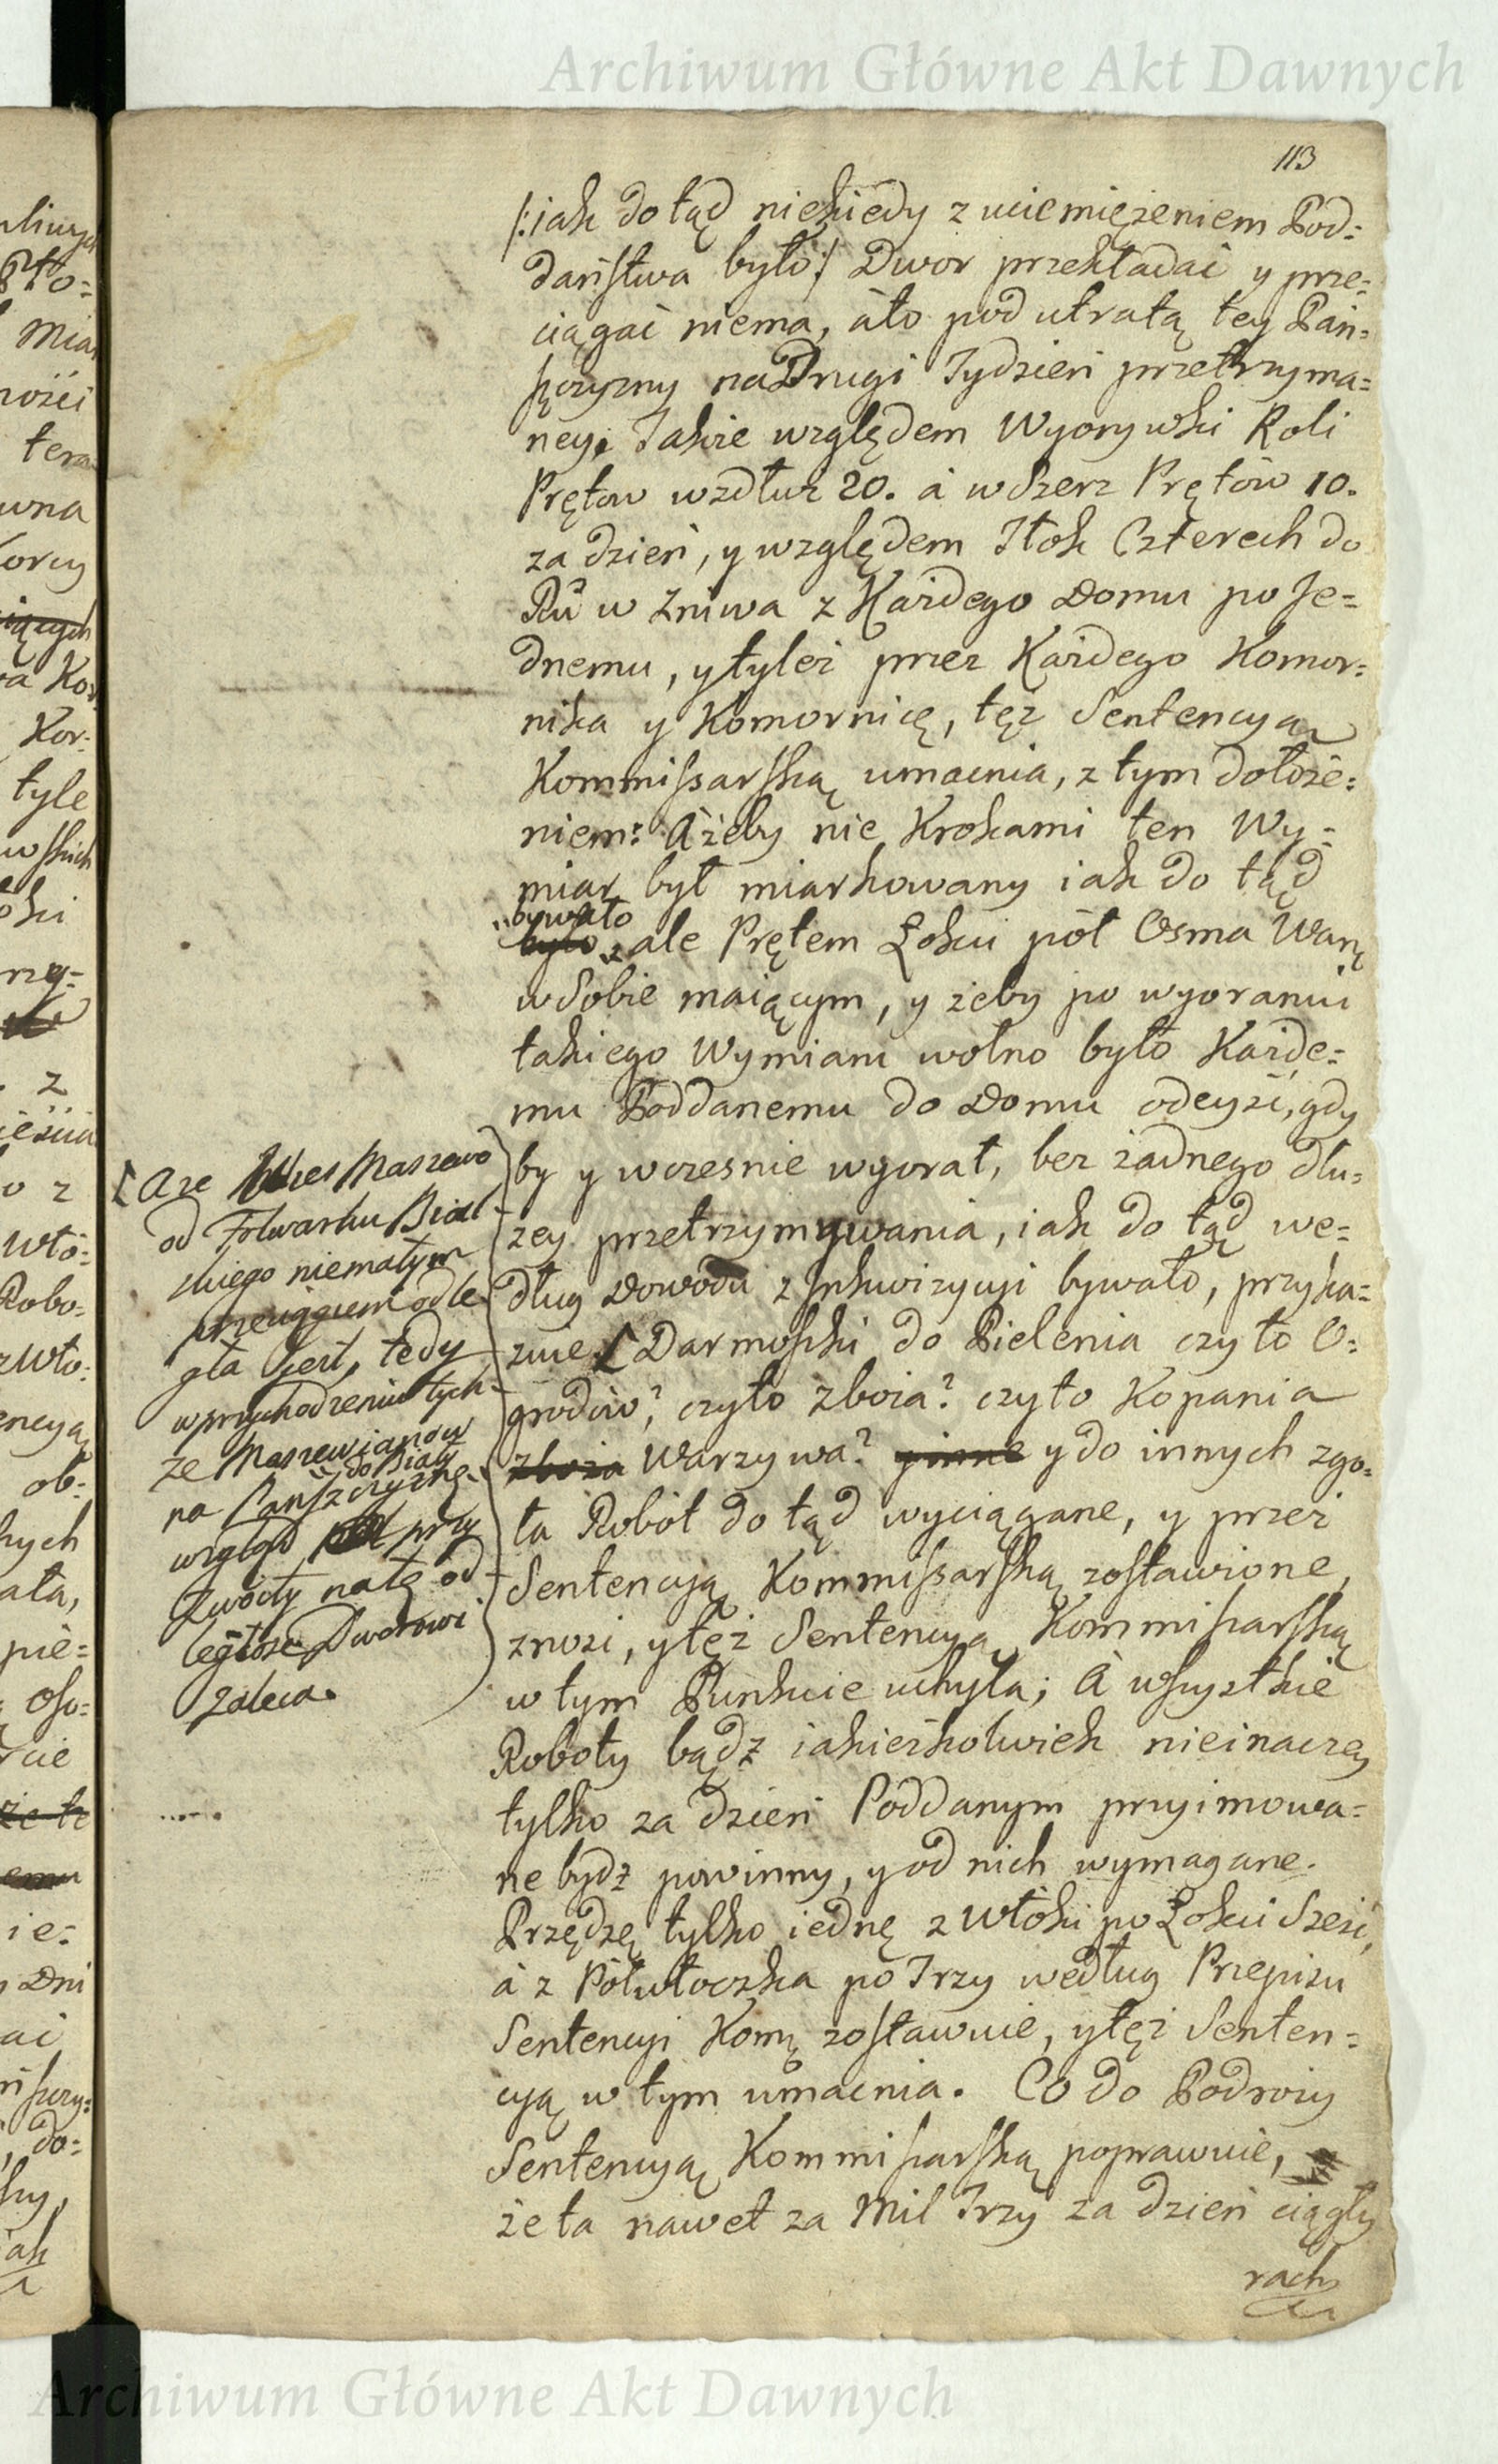 Archiwum Główne Akt Dawnych
113
/:iak do tąd niekiedy z uciemiężeniem Pod:
daństwa było:/ Dwor przekładać y prze:
ciągać niema, áto pod utratą tey Pań:
szczyzny na Drugi Tydzień przetrzyma=
ney. Takze względem Wyorywki Roli
Prętow wzdłuz 20. á w Szerz Prętów 10.
za dzień, y względem Tłok Czterech do
Rũ w Zniwa z Kaźdego Domu po Je=
dnemu, y tyleż przez Kaźdego Komor:
nika y Komornicę, tęz Sentencyą
Kommissarską umacnia, z tym dołoże:
niem: Ażeby nie Krokami ten Wy=
miar był miarkowany iak do tąd
bywało
było, ale Prętem Łokci pół Osma Warſ
w Sobie maiącym, y żeby po wyoraniu
takiego Wymiaru wolno było Kaźde=
mu Poddanemu do Domu odeyść, gdy
by y wczesnie wyorał, bez żadnego dłu:
zey przetrzymywania, iak do tąd we=
dług Dowodu z Inkwizycyi bywało, przyka=
zuie [ Darmoszki do Pielenia czy to O:
grodów? czyto zboża? czyto Kopania
zboża Warzywa? y inne y do innych zgo:
ła Robót do tąd wyciągane, y przez
Sentencyą Kommissarską zostawione,
znosi, y tęż Sentencyą Kommissarską
w tym Punkcie uchyla; á wszystkie
Roboty bądź iakieżkolwiek nieinaczey
tylko za dzień Poddanym przyimowa=
ne bydź powinny, y od nich wymagane.
Przędzę tylko iednę z Włóki po Łokci Sześć,
á z Półwłoczka po Trzy według Przepisu
Sentencyi Komſ zostawuie, y tęż Senten=
cyą w tym umacnia. Co do Podroży
Sentencyą Kommissarską poprawuie,
że ta nawet za Mil Trzy za dzień ciągły
rach
[ A ze Wies Maszewo
od Folwarku Bial=
skiego niemałym
przeciągiem odle
gła iest, tedy
w przychodzeniu tych=
ze Maszewianow
do Biały
na Pańszczyznę
wzgląd przy
zwoity na tę od
ległość Dworowi
zaleca.
Archiwum Główne Akt Dawnych